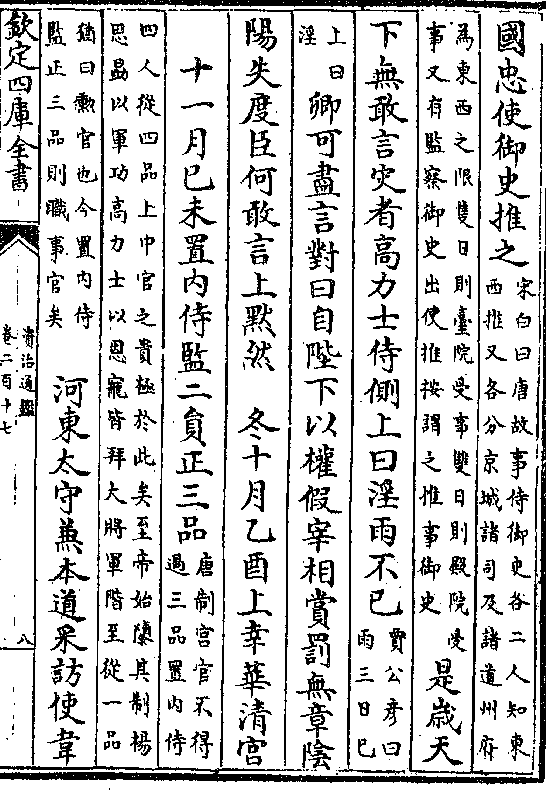 國忠使御史推之 宋白曰唐故事侍御史各二人知東
西推又各分京城諸司及諸道州府
為東西之限隻日則臺院受事雙日則殿院受
事又有監察御史出使推按謂之推事御史 是歲天
下無敢言灾者高力士侍側上曰淫雨不已 賈公彦曰
雨三日已
上曰
淫 卿可盡言對曰自陛下以權假宰相賞罰無章陰
陽失度臣何敢言上黙然 冬十月乙酉上幸華清宫
十一月已未置内侍監二員正三品 唐制宫官不得
過三品置内侍
四人從四品上中官之貴極於此矣至帝始隳其制楊
思勗以軍功高力士以恩寵皆拜大將軍階至從一品
猶曰勲官也今置内侍
監正三品則職事官矣 河東太守兼本道采訪使韋
欽定四庫全書
資治通鑑
卷二百十七
八